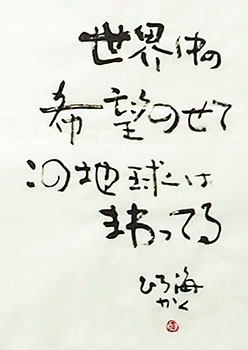 世界中の
希望のせて
この地球は
まわってる
ひろ海
かく